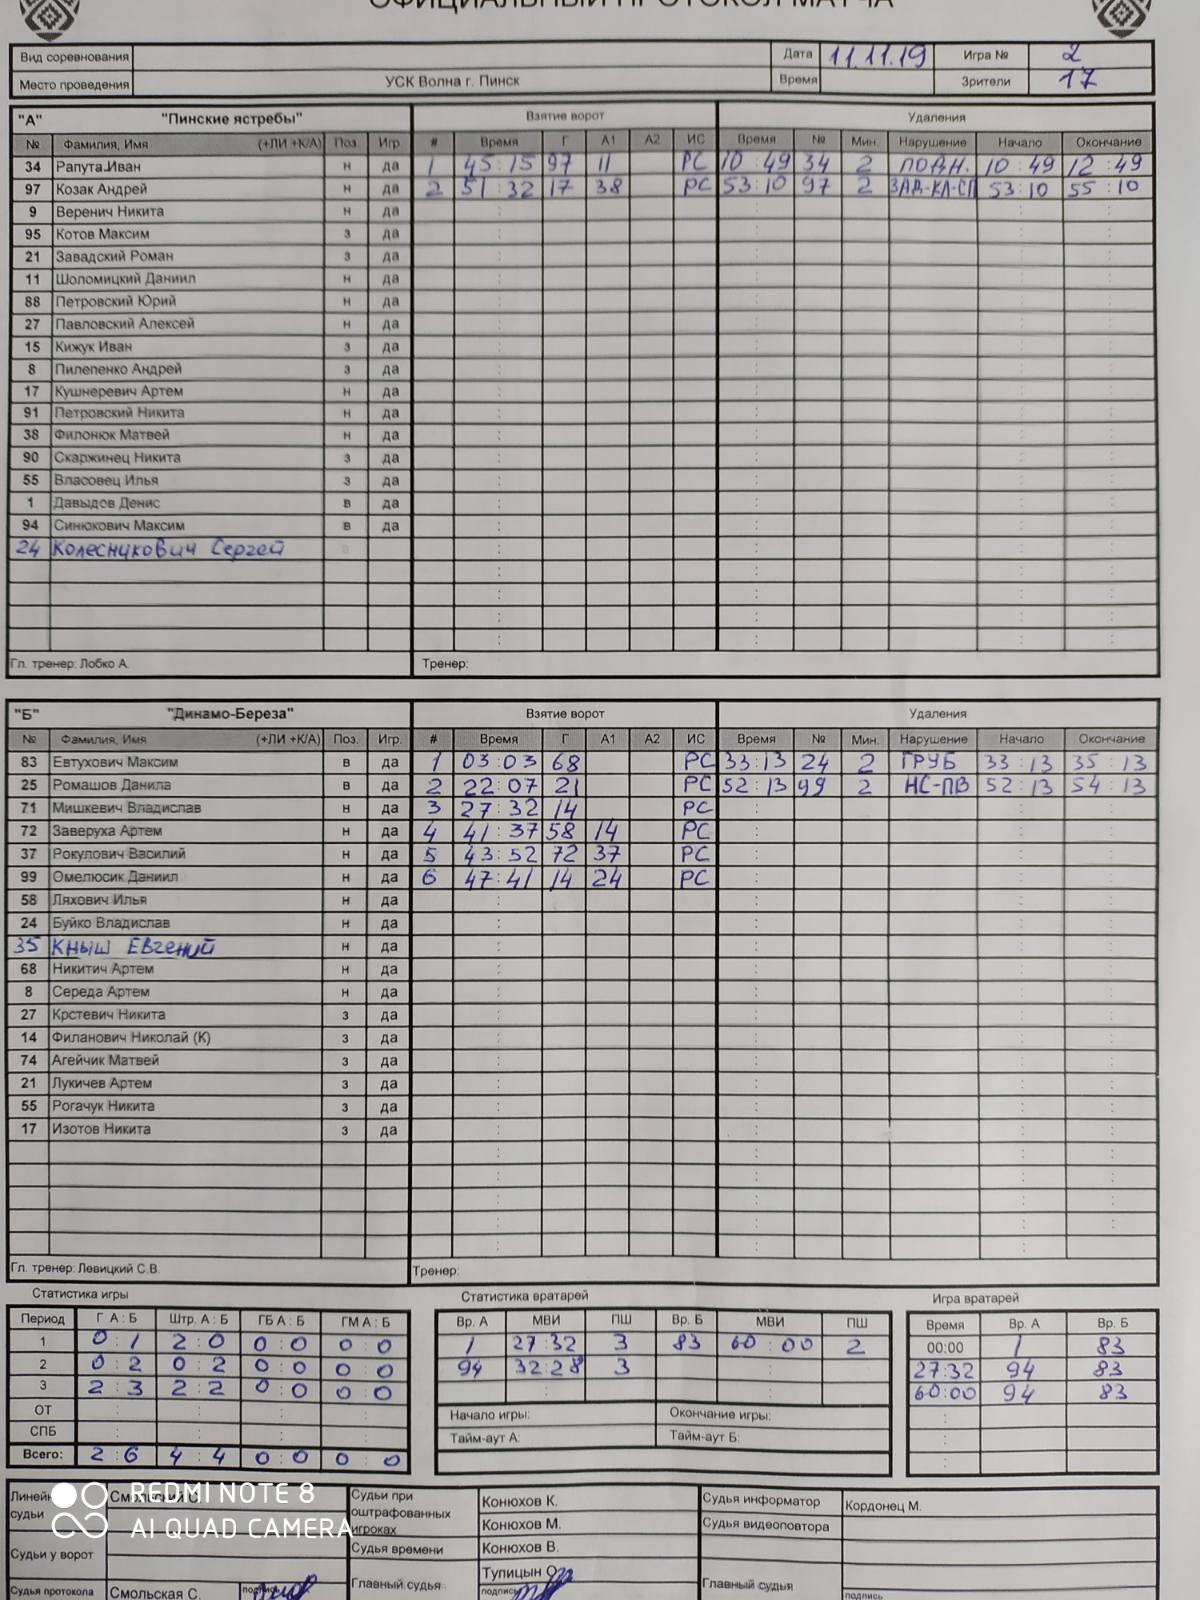 ОФИЦИАЛЬНЫЙ ПРОТОКОЛ МАТЧА
Вид соревнования Дата 11.11.19 Игра № 2
Место проведения УСК Волна г. Пинск Время Зрители 17
"А" "Пинские ястребы" Взятие ворот Удаления
№ Фамилия, Имя (+ЛИ +К/А) Поз. Игр. # Время Г А1 А2 ИС Время № Мин. Нарушение Начало Окончание
34 Рапута Иван н да 1 45:15 97 11 РС 10:49 34 2 ПОДН. 10:49 12:49
97 Козак Андрей н да 2 51:32 17 38 РС 53:10 97 2 ЗАД-КЛ-СП 53:10 55:10
9 Веренич Никита н да
95 Котов Максим з да
21 Завадский Роман з да
11 Шоломицкий Даниил н да
88 Петровский Юрий н да
27 Павловский Алексей н да
15 Кижук Иван з да
8 Пилепенко Андрей з да
17 Кушнеревич Артем н да
91 Петровский Никита н да
38 Филонюк Матвей н да
90 Скаржинец Никита з да
55 Власовец Илья з да
1 Давыдов Денис в да
94 Синюкович Максим в да
24 Колесникович Сергей
Гл. тренер: Лобко А. Тренер:
"Б" "Динамо-Береза" Взятие ворот Удаления
№ Фамилия, Имя (+ЛИ +К/А) Поз. Игр. # Время Г А1 А2 ИС Время № Мин. Нарушение Начало Окончание
83 Евтухович Максим в да 1 03:03 68 РС 33:13 24 2 ГРУБ 33:13 35:13
25 Ромашов Данила в да 2 22:07 21 РС 52:13 99 2 НС-ПВ 52:13 54:13
71 Мишкевич Владислав н да 3 27:32 14 РС
72 Заверуха Артем н да 4 41:37 58 14 РС
37 Рокулович Василий н да 5 43:52 72 37 РС
99 Омелюсик Даниил н да 6 47:41 14 24 РС
58 Ляхович Илья н да
24 Буйко Владислав н да
35 Кныш Евгений н да
68 Никитич Артем н да
8 Середа Артем н да
27 Крстевич Никита з да
14 Филанович Николай (К) з да
74 Агейчик Матвей з да
21 Лукичев Артем з да
55 Рогачук Никита з да
17 Изотов Никита з да
Гл. тренер: Левицкий С.В. Тренер:
Статистика игры Статистика вратарей Игра вратарей
Период Г А : Б Штр. А : Б ГБ А : Б ГМ А : Б Вр. А МВИ ПШ Вр. Б МВИ ПШ Время Вр. А Вр. Б
1 0:1 2:0 0:0 0:0 1 27:32 3 83 60:00 2 00:00 1 83
2 0:2 0:2 0:0 0:0 94 32:28 3 27:32 94 83
3 2:3 2:2 0:0 0:0 60:00 94 83
ОТ Начало игры: Окончание игры:
СПБ Тайм-аут А: Тайм-аут Б:
Всего: 2:6 4:4 0:0 0:0
Линейн судьи Смольский С. Судьи при оштрафованных игроках Конюхов К. Судья информатор Кордонец М.
Конюхов М. Судья видеоповтора
Судьи у ворот Судья времени Конюхов В.
Главный судья Тупицын О. Главный судья
Судья протокола Смольская С. подпись подпись подпись
REDMI NOTE 8
AI QUAD CAMERA